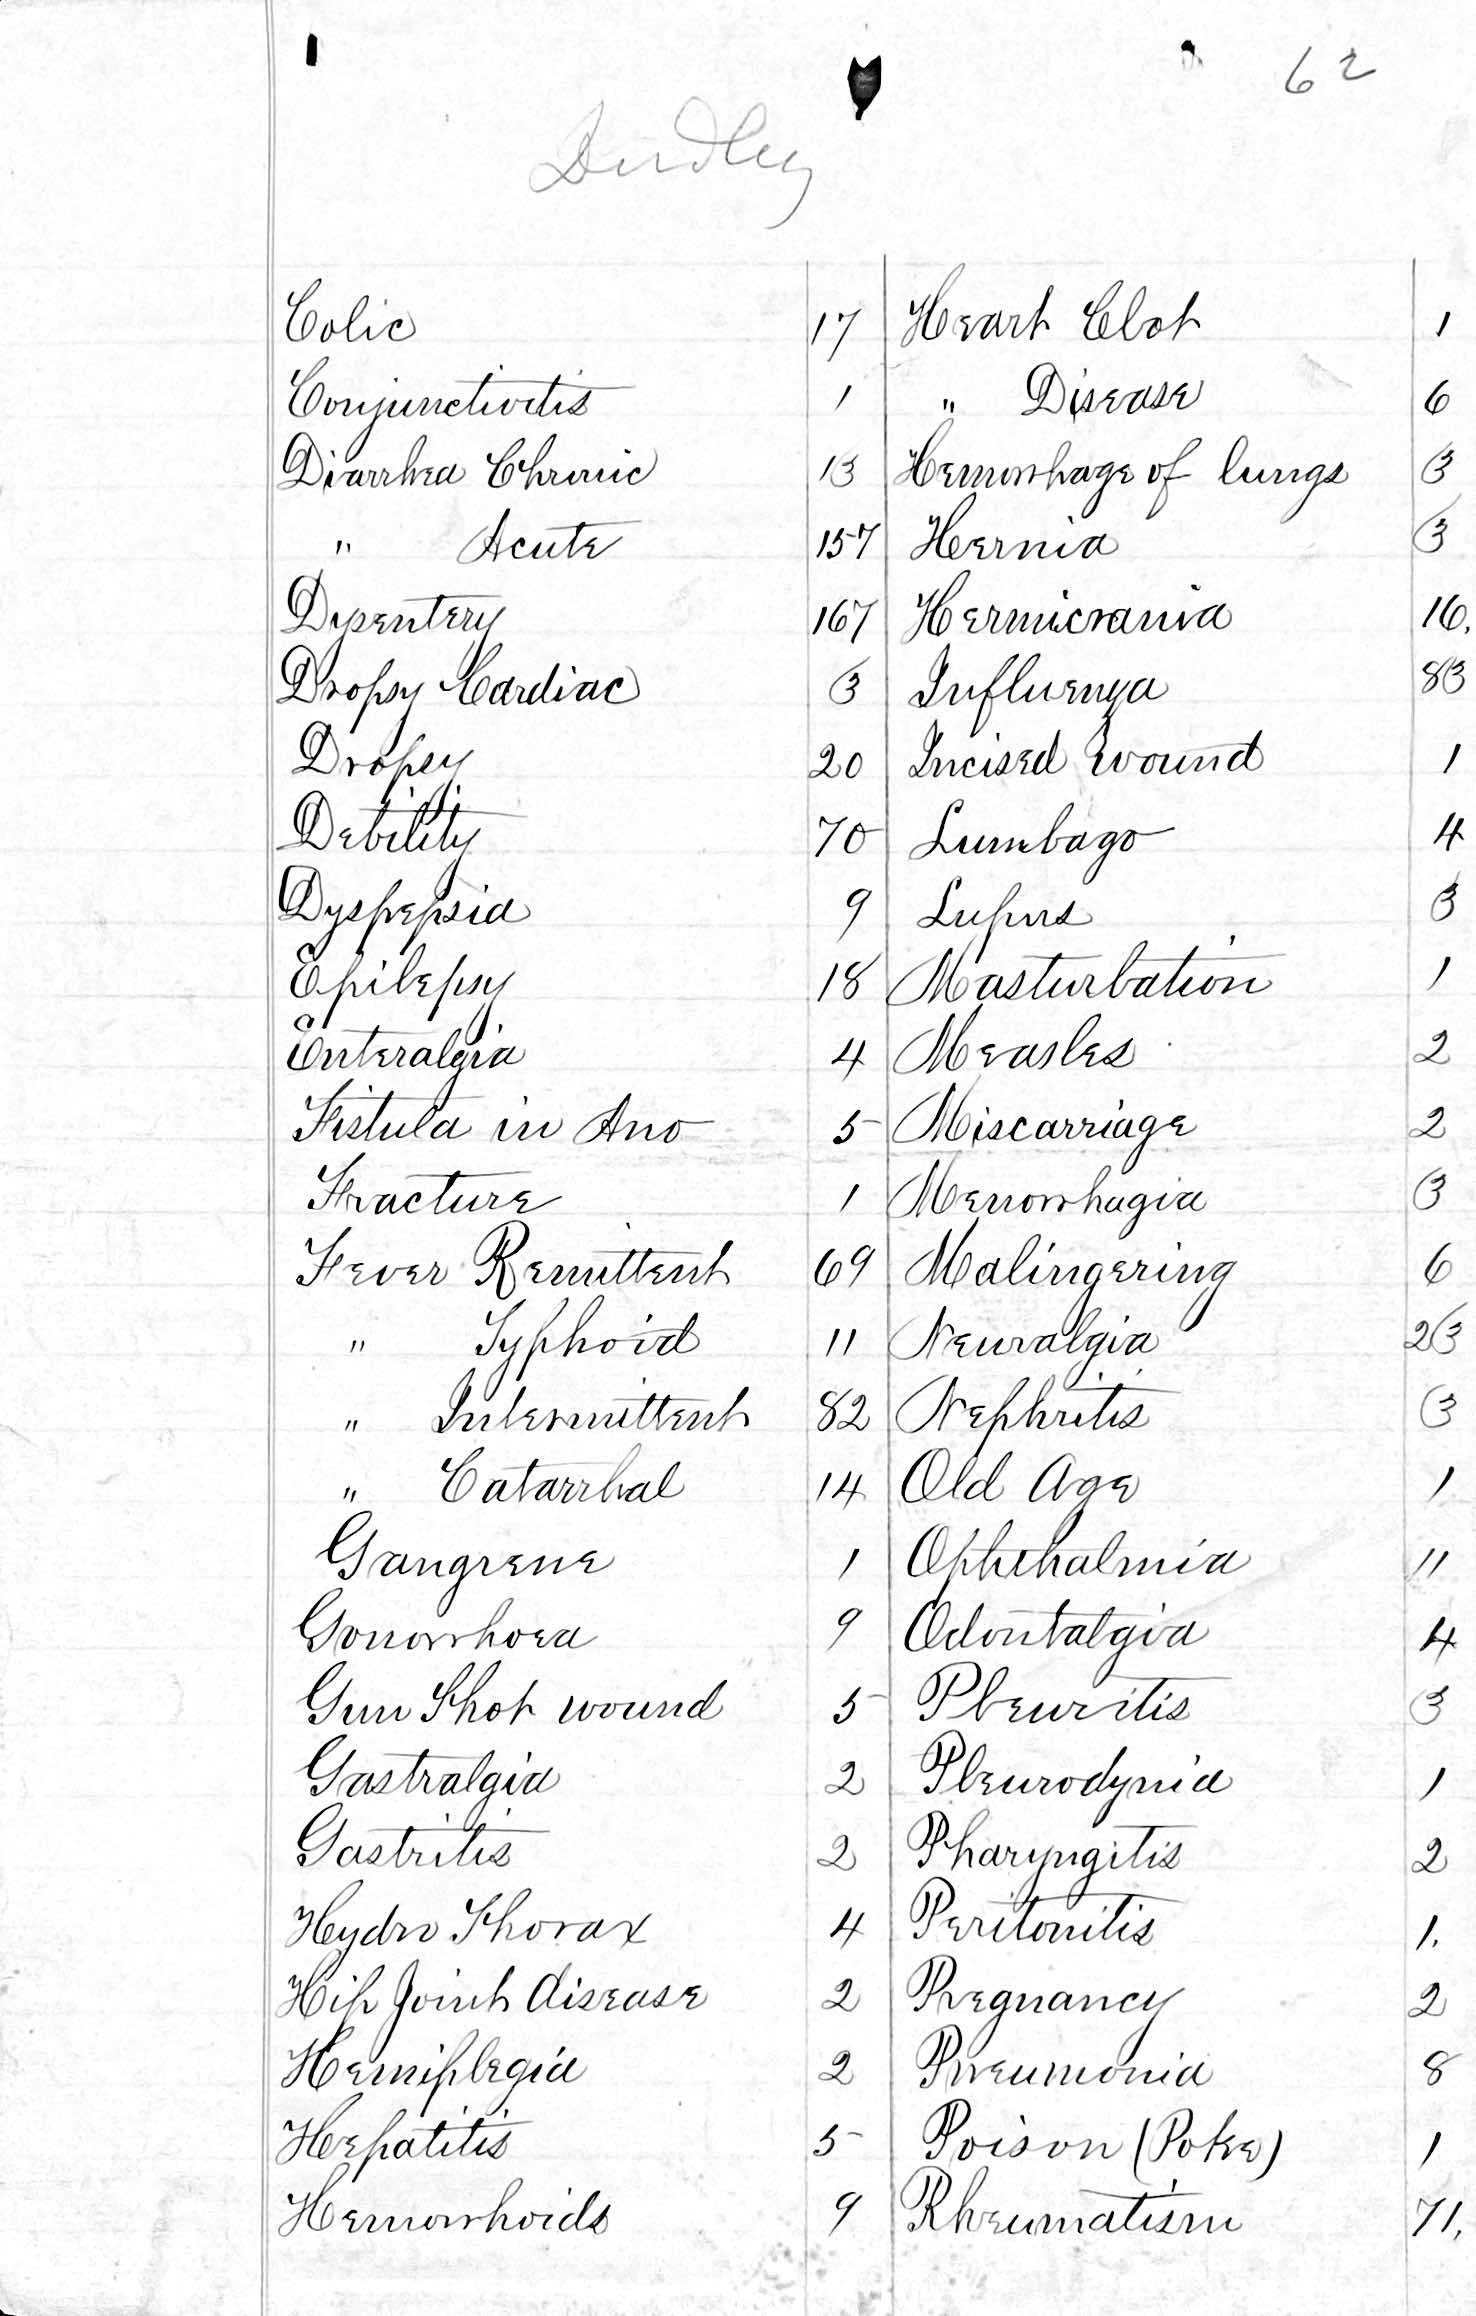 62
Dudley
Colic 17
Conjunctivitis 1
Diarrhea Chronic 13
" Acute 157
Dysentery 167
Dropsy Cardiac 3
Dropsy 20
Debility 70
Dyspepsia 9
Epilepsy 18
Enteralgia 4
Fistula in Ano 5
Fracture 1
Fever Remittent 69
" Typhoid 11
" Intermittent 82
" Catarrhal 14
Gangrene 1
Gonorrhoea 9
Gun Shot wound 5
Gastralgia 2
Gastritis 2
Hydro Thorax 4
Hip Joint disease 2
Hemiplegia 2
Hepatitis 5
Hemorrhoids 9
Heart Clot 1
" Disease 6
Hemorrhage of lungs 3
Hernia 3
Hermicrania 16.
Influenza 83
Incised wound 1
Lumbago 4
Lupus 3
Masturbation 1
Measles 2
Miscarriage 2
Menorrhagia 3
Malingering 6
Neuralgia 23
Nephritis 3
Old Age 1
Ophthalmia 11
Odontalgia 4
Pleuritis 3
Pleurodynia 1
Pharyngitis 2
Peritonitis 1.
Pregnancy 2
Pneumonia 8
Poison (Poke) 1
Rheumatism 71.